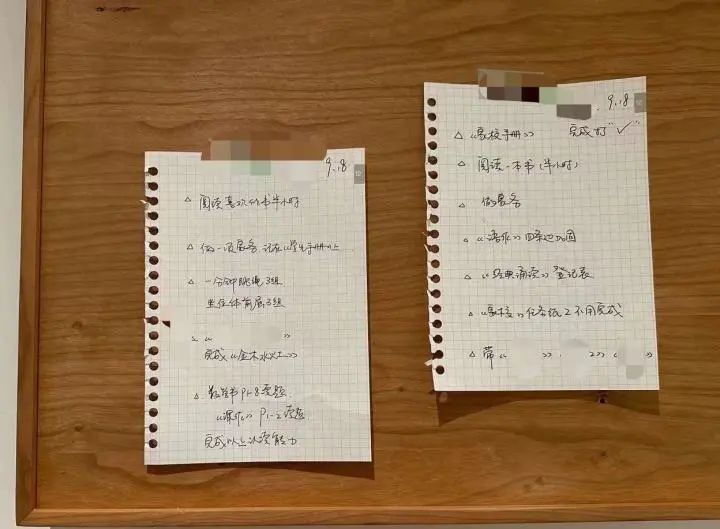 9.18
△ 阅读喜欢的书半小时
△ 做一项家务,记在《学生手册》上
△ 一分钟跳绳3组
坐位体前屈3组
△ 《 》
完成《金木水火土》
△ 数学书P1-8读题
《课作》P1-2读题
完成以上次读能力
9.18
△ 《家校手册》 完成打"✓"
△ 阅读一本书(半小时)
△ 做家务
△ 《课作》四季边加图
△ 《经典诵读》登记表
△ 《家校》任务纸2不用完成
△ 带《 》《 2》《 》